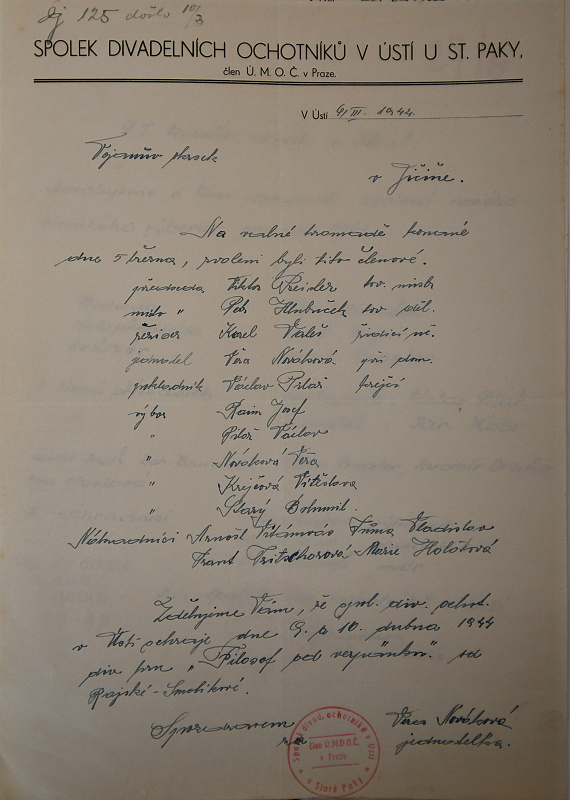 čj 125 došlo 10/3
SPOLEK DIVADELNÍCH OCHOTNÍKŮ V ÚSTÍ U ST. PAKY,
člen Ú. M. O. Č. v Praze.
V Ústí 9/III. 1944.
v Jičíně.
Na valné hromadě konané
dne 5 března, zvoleni byli tito členové.
předseda Viktor tov. mistr
místo „ Petr Hlubuček tov. děl.
režiser Karel Valeš řídící uč.
jednatel Věra Nováková při dom.
pokladník Václav krejčí
výbor Josef
„ Václav
„ Nováková Věra
„ Krejčová Vítězslava
„ Starý Bohumil.
Náhradníci Arnošt Tůma Vladislav
Frant Marie Holátová
Sdělujeme Vám, že spol. div. ochot.
v Ústí sehraje dne 9. a 10. dubna 1944
div hru „Filosof pod verpánkem". od
Rajské-Smolíkové.
Věra Nováková
jednatelka.
Spolek divad. ochotníků v Ústí
člen Ú.M.D.O.Č.
v Praze
u Staré Paky